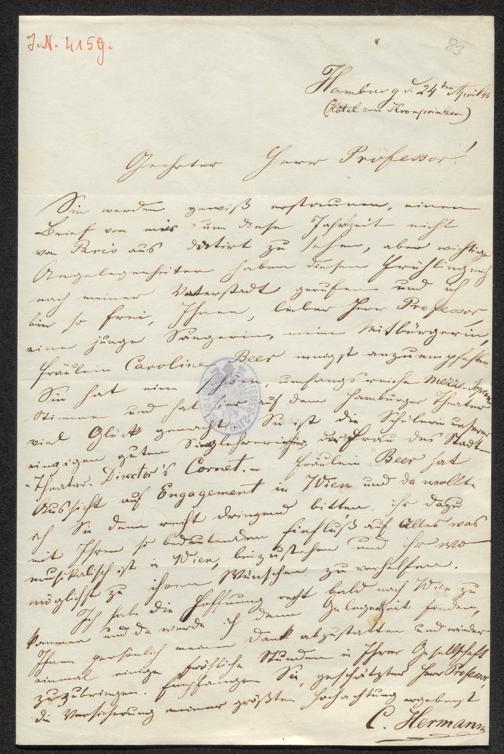 J.N. 4159.
83
Hamburg d. 24ten April
(Hôtel zum Kronprinzen)
Geehrter Herr Professor!
Sie werden gewiß erstaunen, einen
Brief von mir um diese Jahrzeit nicht
von Paris aus datirt zu sehen, aber wichtige
Angelegenheiten haben diesen Frühling mich
nach meiner Vaterstadt gerufen und ich
bin so frei, Ihnen, lieber Herr Professor
eine junge Sängerin, meine Mitbürgerin,
Fräulein Caroline Beer innigst anzuempfehlen
Sie hat eine schöne, umfangreiche Mezzo Sopran
Stimme und hat auf dem Hamburger Theater
viel Glück gemacht. Sie ist die Schülerin unserer
einzigen guten der Frau des Stadt
-Theater-Director's Cornet.- Fräulein Beer hat
Aussicht auf Engagement in Wien und da wollte
ich Sie denn recht dringend bitten, ihr dazu
mit Ihrem so bedeutenden Einfluß auf Alles was
musikalisch ist in Wien, beizustehen und ihr wo
möglich zu ihrem Wünschen zu verhelfen.
Ich habe die Hoffnung recht bald nach Wien zu
kommen und da werde ich denn Gelegenheit finden,
Ihnen persönlich meinen Dank abzustatten und wieder
einmal einige fröhliche Stunden in Ihrer Gesellschaft
zuzubringen. Empfangen Sie, geschätzter Herr Professor,
die Versicherung meiner größten Hochachtung ergebenst
C. Hermann